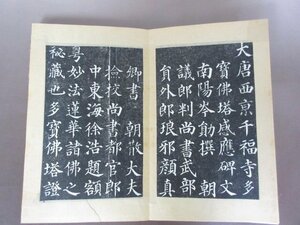 大唐西京千福寺多
寶佛塔感應碑文
南陽岑勛撰 朝
議郎判尚書武部
員外郎琅邪顏真
卿書 朝散大夫
撿校尚書都官郎
中東海徐浩題額
粵妙法蓮華諸佛之
祕藏也多寶佛塔證